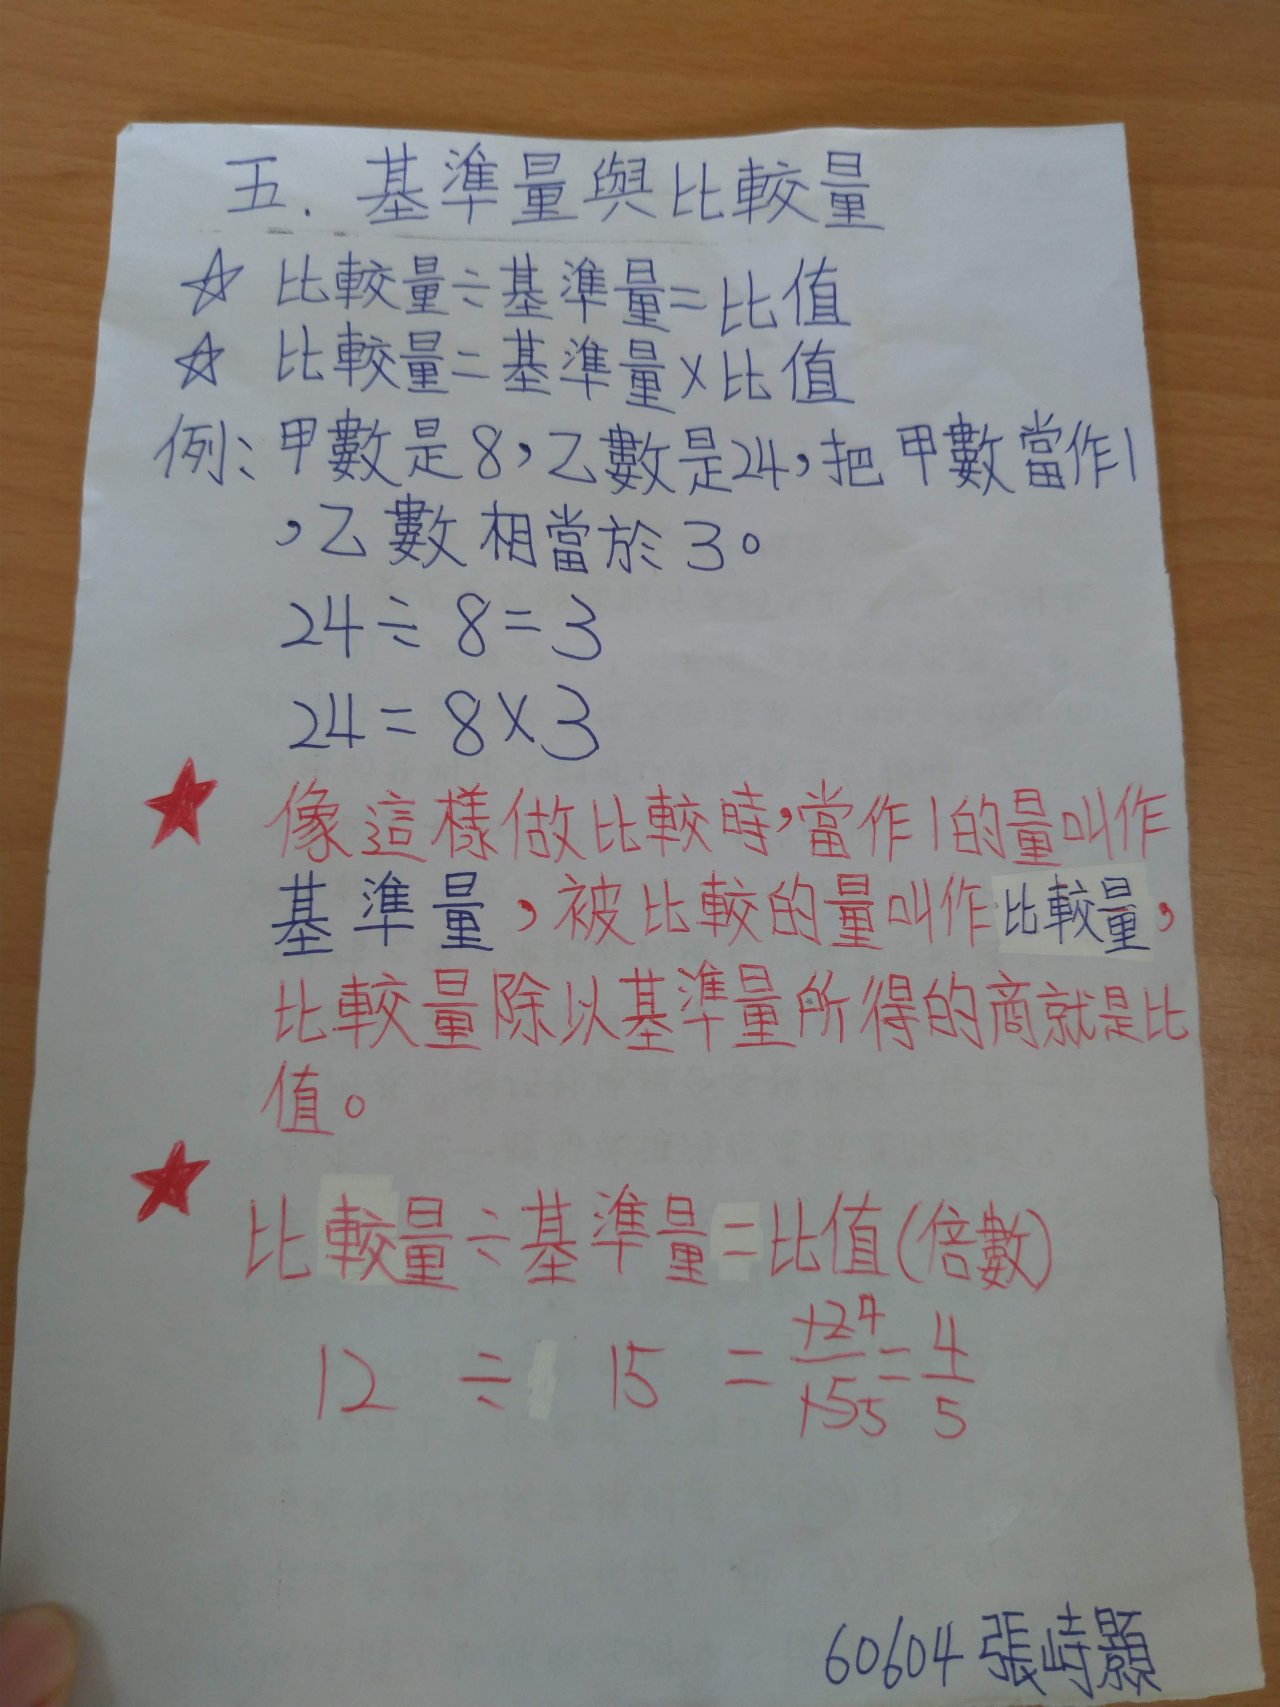 五. 基準量與比較量
☆ 比較量÷基準量=比值
☆ 比較量=基準量×比值
例:甲數是8,乙數是24,把甲數當作1
,乙數相當於3。
24÷8=3
24=8×3
★ 像這樣做比較時,當作1的量叫作
基準量,被比較的量叫作比較量,
比較量除以基準量所得的商就是比
值。
★ 比較量÷基準量=比值(倍數)
12 ÷ 15 = 12 4/15 5 = 4/5
60604 張峙顥